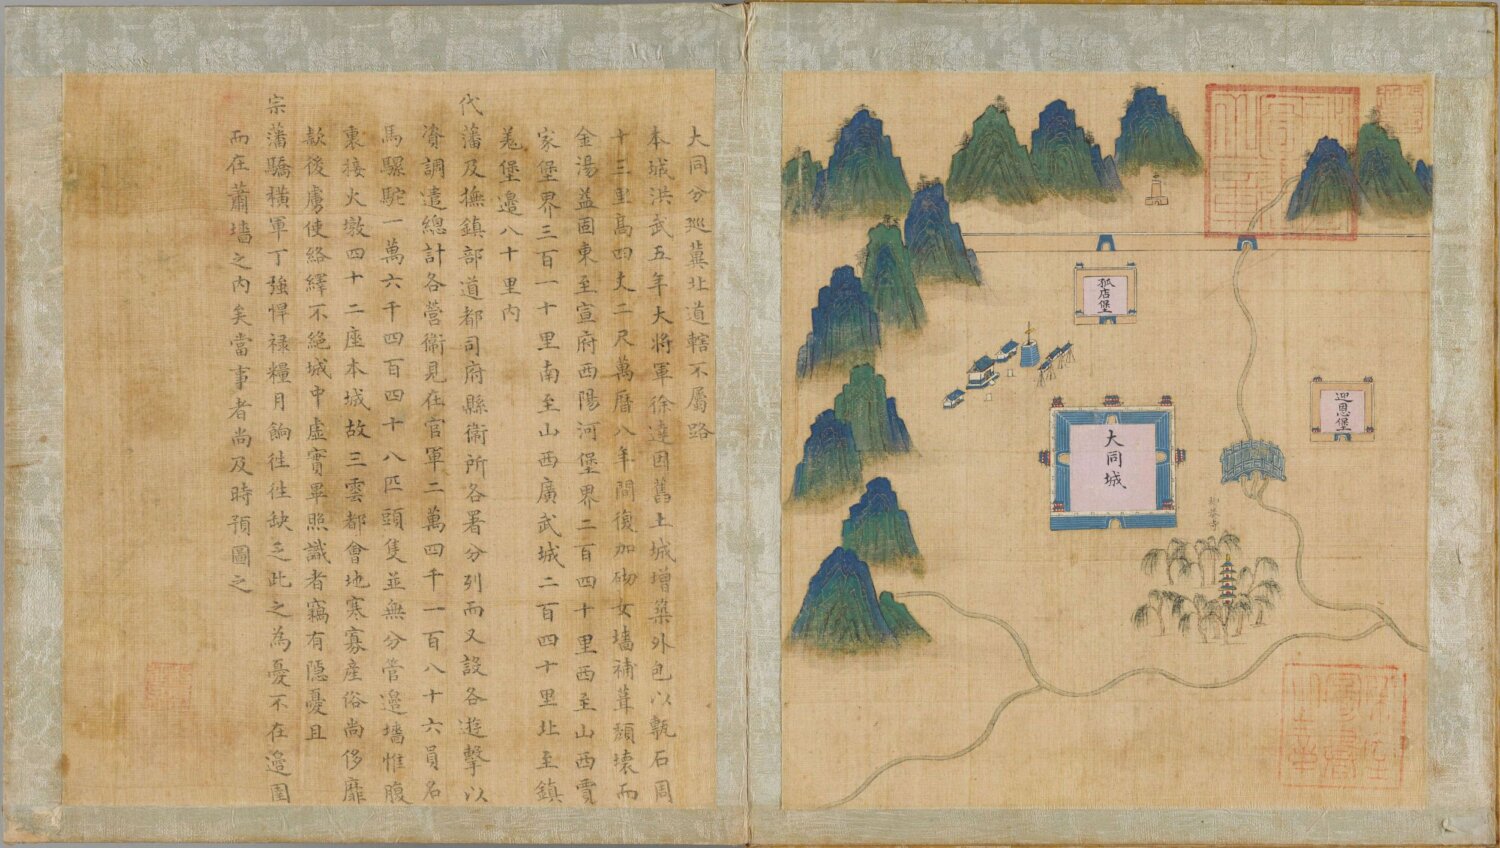 大同分巡冀北道轄不屬路
本城洪武五年大將軍徐達因舊土城增築外包以甎石周
十三里高四丈二尺萬曆八年間復加砌女墻補葺頹壞而
金湯益固東至宣府西陽河堡界二百四十里西至山西賈
家堡界三百一十里南至山西廣武城二百四十里北至鎮
羌堡邉八十里內
代藩及撫鎮部道都司府縣衛所各署分列而又設各遊擊以
資調遣總計各營衛見在官軍二萬四千一百八十六員名
馬騾駝一萬六千四百四十八匹頭隻並無分管邉墻惟腹
裏接火墩四十二座本城故三雲都會地寒寡產俗尚侈靡
款後虜使絡繹不絕城中虛實畢照識者竊有隱憂且
宗藩驕橫軍丁強悍祿糧月餉徃徃缺乏此之為憂不在邉圉
而在蕭墻之內矣當事者尚及時預圖之
孤店堡
迎恩堡
大同城